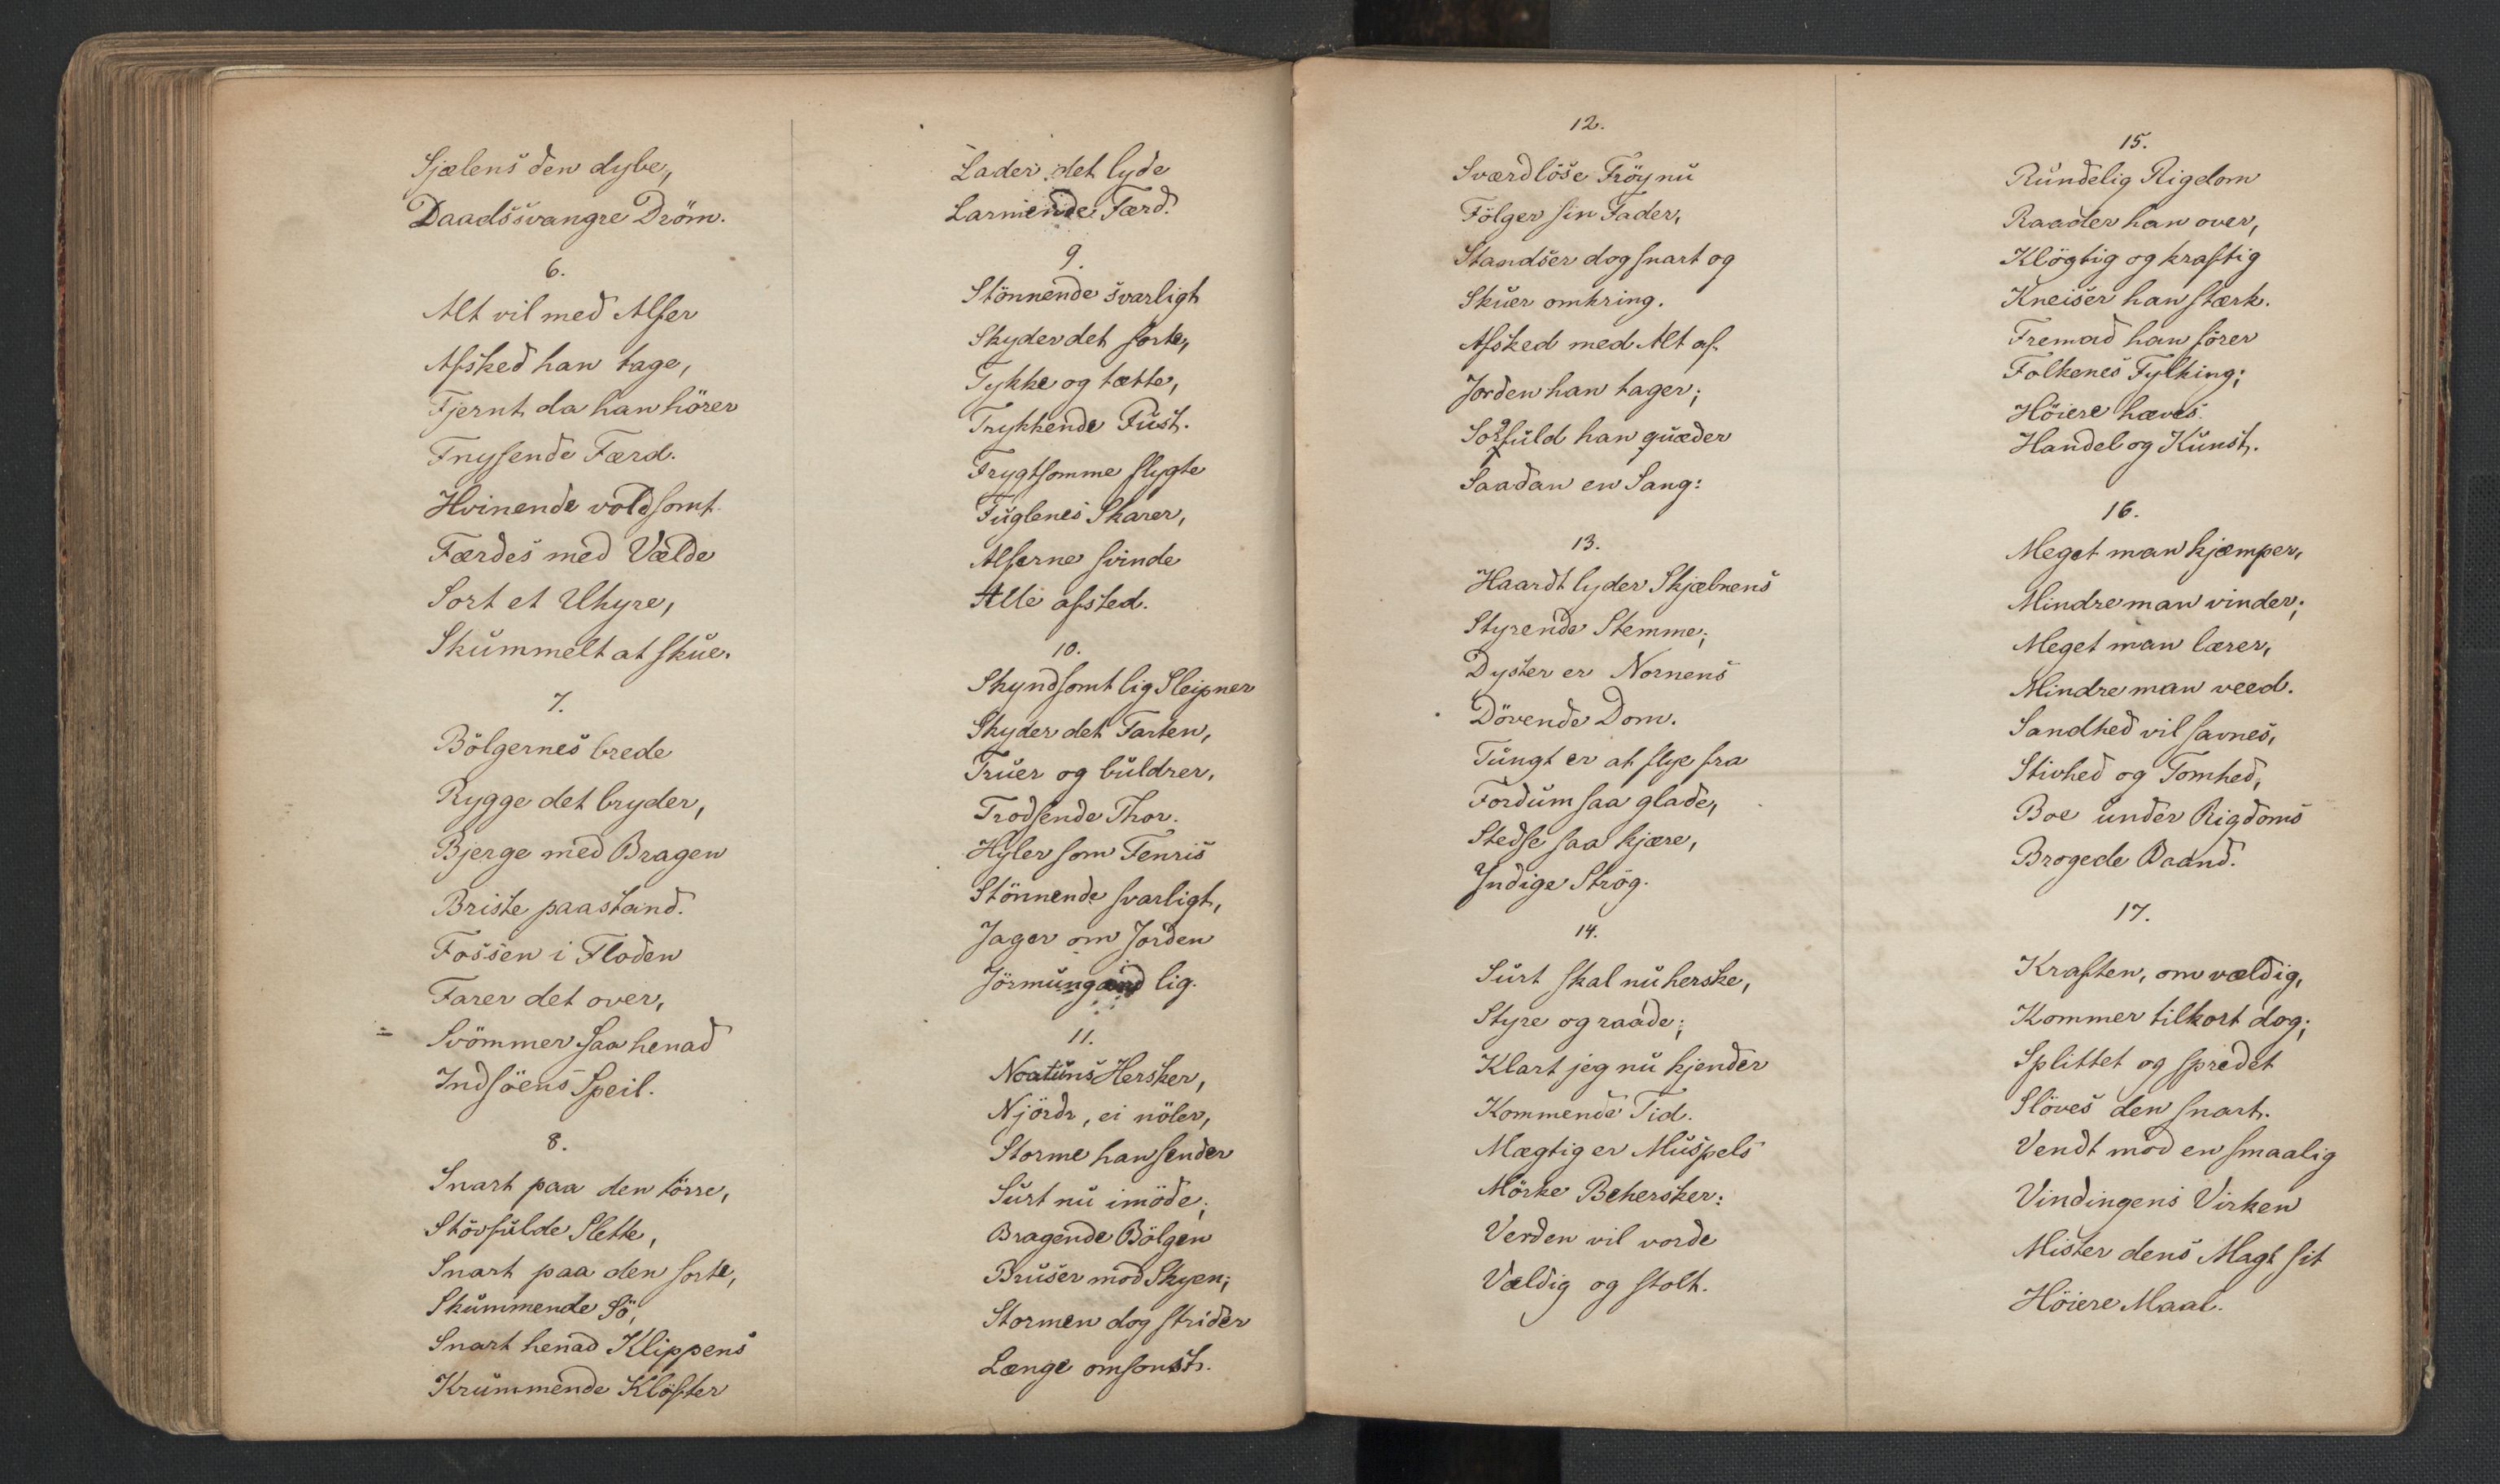 Sjælens den dybe,
Daadssvangre Dröm.
6.
Alt vil med Alfer
Afsked han tage,
Fjernt da han hörer
Fnysende Færd.
Hvinende voldsomt
Færdes med Vælde
Sort et Uhyre,
Skummelt at skue.
7.
Bölgernes brede
Rygge det bryder,
Bjerge med Bragen
Briste paastand.
Fossen i Floden
Farer det over,
Svömmer saa henad
Indsöens Speil.
8.
Snart paa den törre,
Stövfulde Slette,
Snart paa den sorte,
Skummende Sö,
Snart henad Klippens
Krummende Klöfter
Lader det lyde
Larmende Færd.
9.
Stönnende svarligt
Skyder det sorte,
Tykke og tætte,
Trykkende Pust.
Frygtsomme flygte
Fuglenes Skarer,
Alferne svinde
Alle afsted.
10.
Skyndsomt lig Sleipner
Skyder det Farten,
Truer og buldrer,
Trodsende Thor.
Hyler som Fenris
Stönnende svarligt,
Jager om Jorden
Jörmungand lig.
11.
Noatuns Hersker,
Njördr, ei nöler,
Storme han sender
Surt nu imöde;
Bragende Bölgen
Bruser mod Skyen;
Stormen dog strider
Længe omsonst.
12.
Sværdlöse Fröy nu
Fölger sin Fader,
Standser dog snart og
Skuer omkring.
Afsked med Alt af
Jorden han tager;
Sorgfuld han quæder
Saadan en Sang:
13.
Haardt lyder Skjæbnens
Styrende Stemme;
Dyster er Nornens
Dövende Dom.
Tungt er at flye fra
Fordum saa glade,
Stedse saa kjære,
Yndige Strög.
14.
Surt skal nu herske,
Styre og raade;
Klart jeg nu kjender
Kommende Tid.
Mægtig er Muspels
Mörke Behersker:
Verden vil vorde
Vældig og stolt.
15.
Rundelig Rigdom
Raader han over,
Klögtig og kraftig
Kneiser han stærk.
Fremad han förer
Folkenes Fylking;
Höiere hæves
Handel og Kunst.
16.
Meget man kjæmper,
Mindre man vinder;
Meget man lærer,
Mindre man veed.
Sandhed vil savnes,
Stivhed og Tomhed,
Boe under Rigdoms
Brogede Baand.
17.
Kraften, om vældig,
Kommer tilkort dog;
Splittet og spredet
Slöves den snart.
Vendt mod en smaalig
Vindingens Virken
Mister dens Magt sit
Höiere Maal.